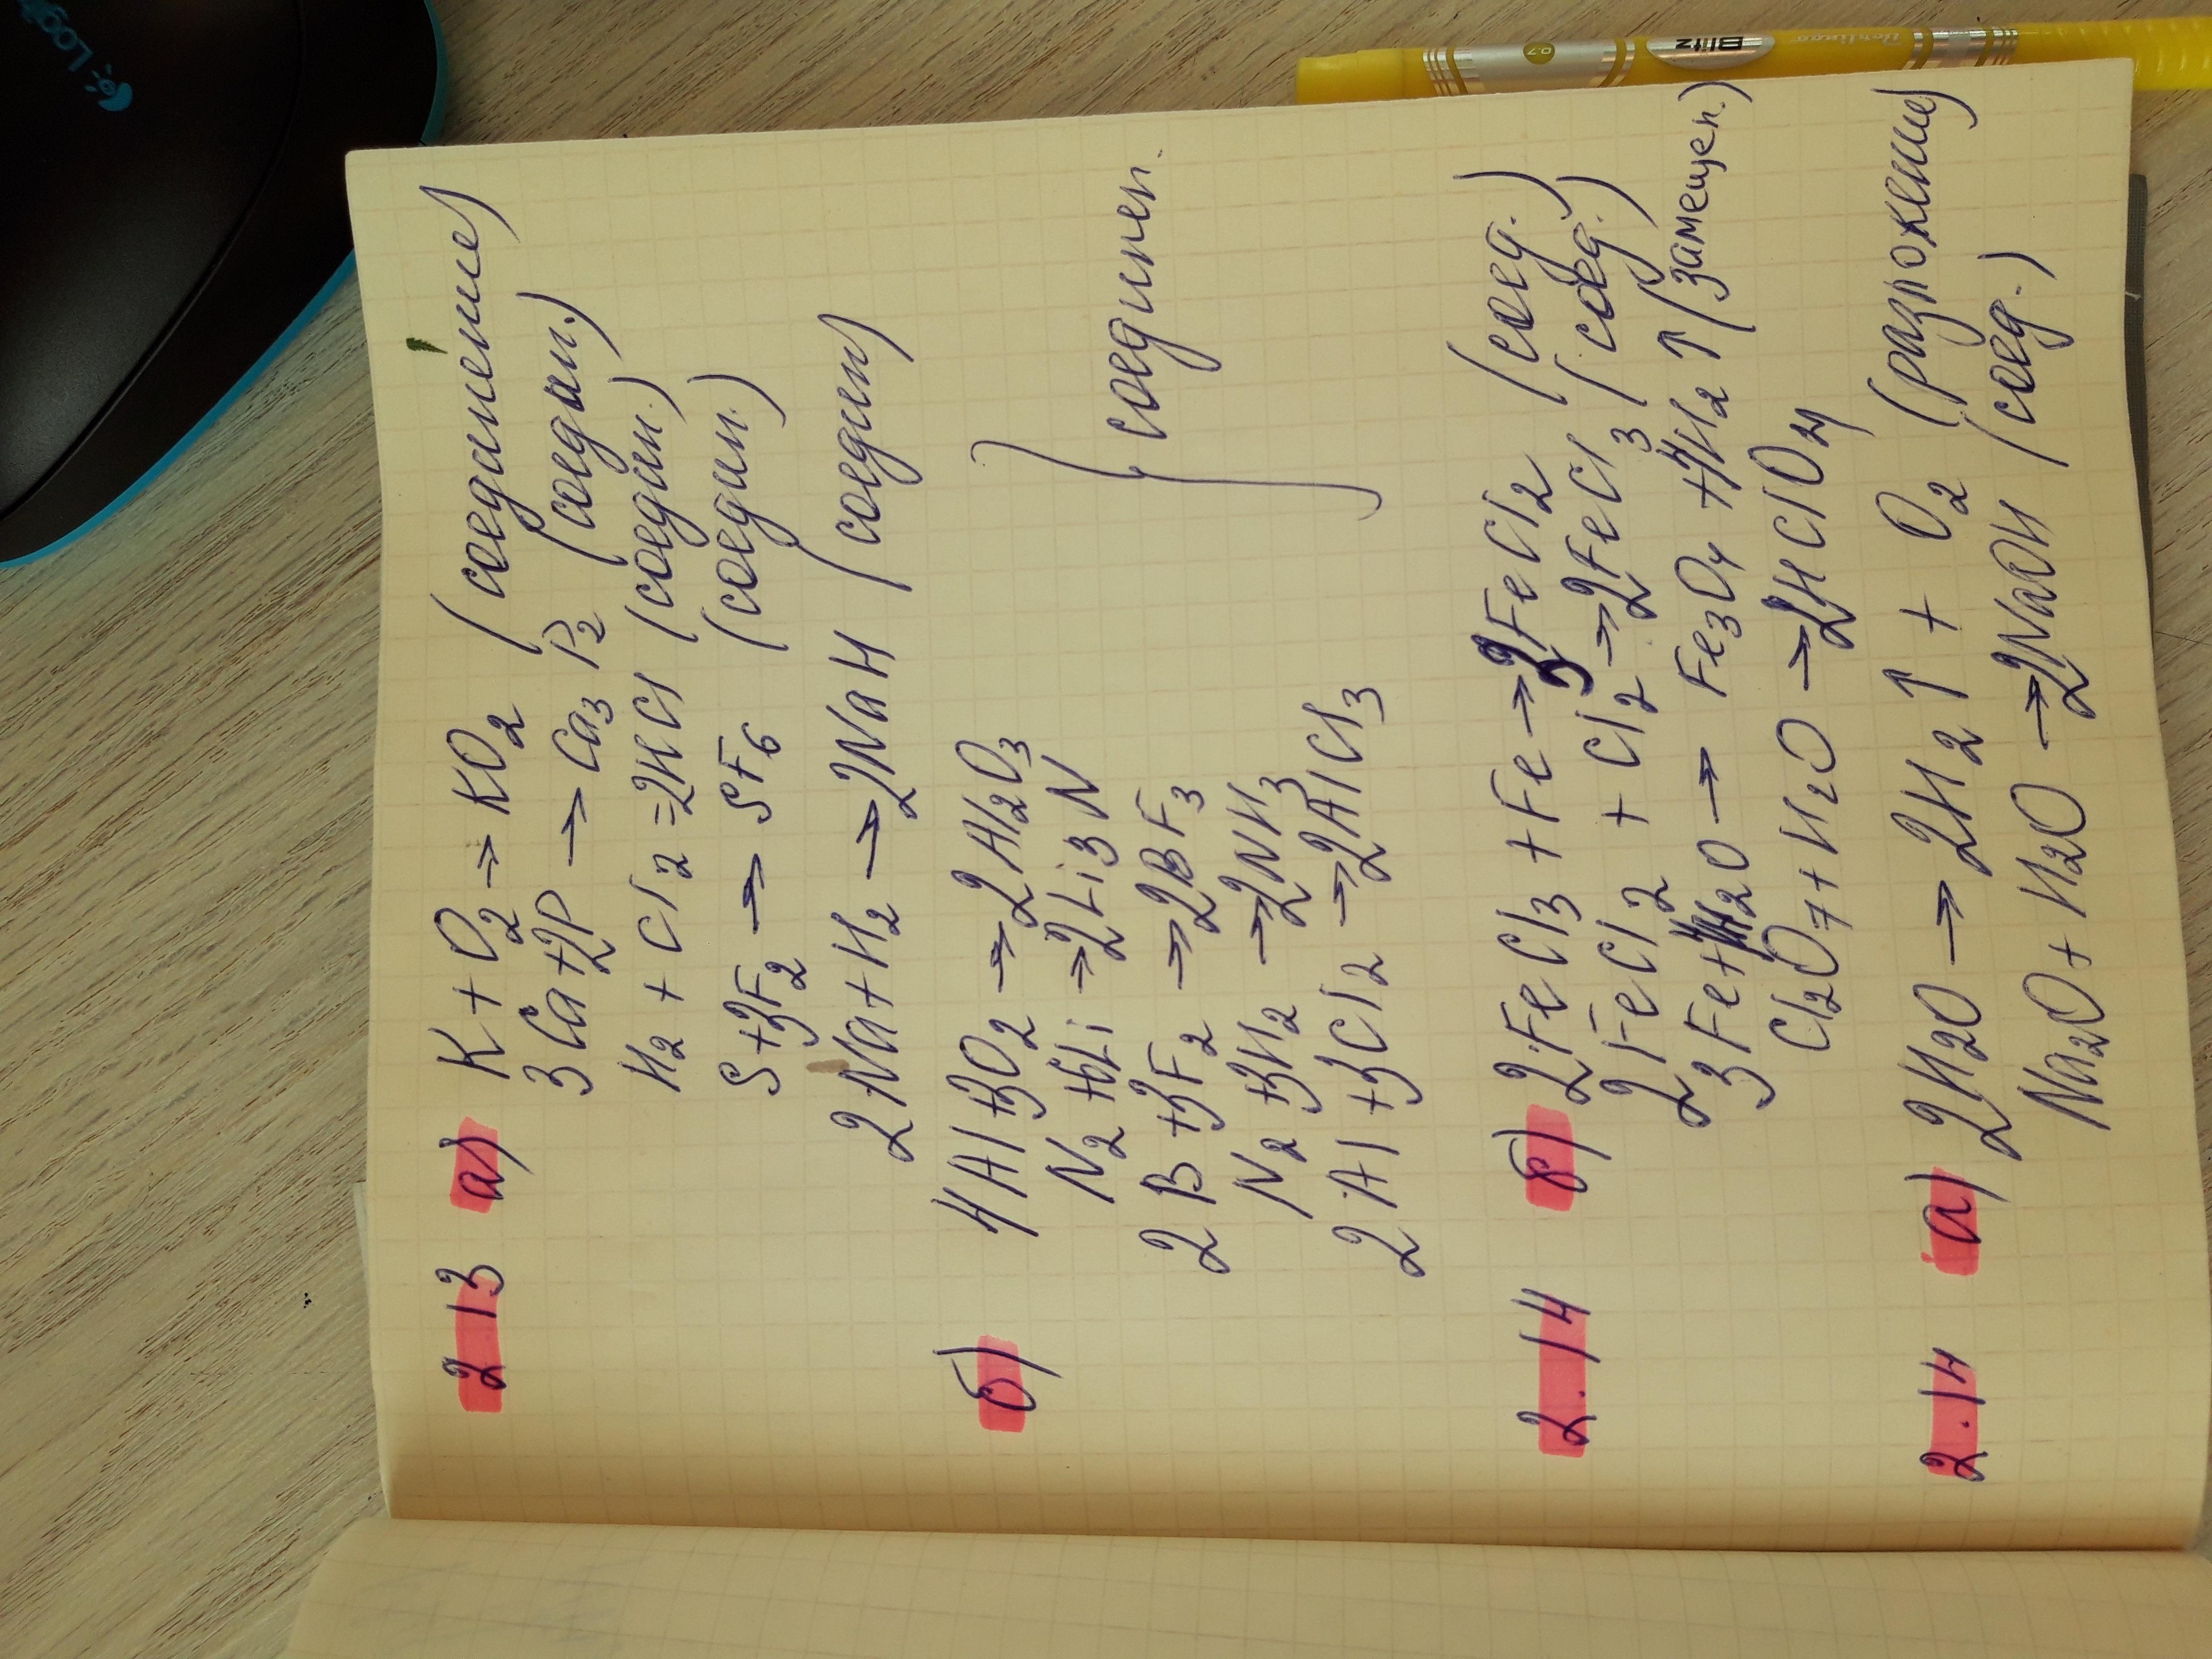 2 13 а) K + O₂ → KO₂ (соединение)
3Ca + 2P → Ca₃P₂ (соедин.)
H₂ + Cl₂ = 2HCl (соедин.)
S + 3F₂ → SF₆ (соедин.)
2Na + H₂ → 2NaH (соедин)
б) 4Al + 3O₂ → 2Al₂O₃
N₂ + 6Li → 2Li₃N
2B + 3F₂ → 2BF₃
N₂ + 3H₂ → 2NH₃
2Al + 3Cl₂ → 2AlCl₃
соединен.
2.14 б) 2FeCl₃ + Fe → 3FeCl₂ (соед.)
2FeCl₂ + Cl₂ → 2FeCl₃ (соед.)
3Fe + 4H₂O → Fe₃O₄ + 4H₂ ↑ (замещен.)
Cl₂O₇ + H₂O → 2HClO₄
2.14 а) 2H₂O → 2H₂ ↑ + O₂ (разложение)
Na₂O + H₂O → 2NaOH (соед.)
Blitz
Berlingo
0.7